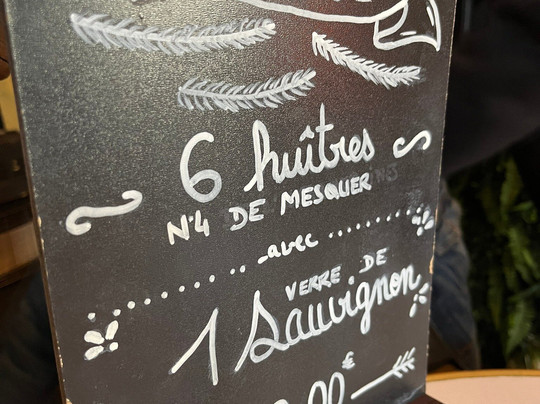 6 huîtres
N°4 DE MESQUER
avec
1 VERRE DE
Sauvignon
€